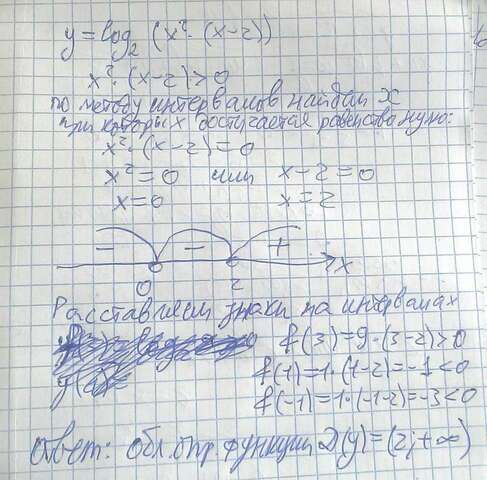 y = log₂ (x² · (x-2))
x² · (x-2) > 0
по методу интервалов найдём x
при которых достигается равенство нулю:
x² · (x-2) = 0
x² = 0 или x-2 = 0
x = 0 x = 2
- - +
0 2 x
Расставляем знаки на интервалах
f(3) = 9 · (3-2) > 0
f(1) = 1 · (1-2) = -1 < 0
f(-1) = 1 · (-1-2) = -3 < 0
Ответ: обл. опр. функции D(y) = (2; +∞)